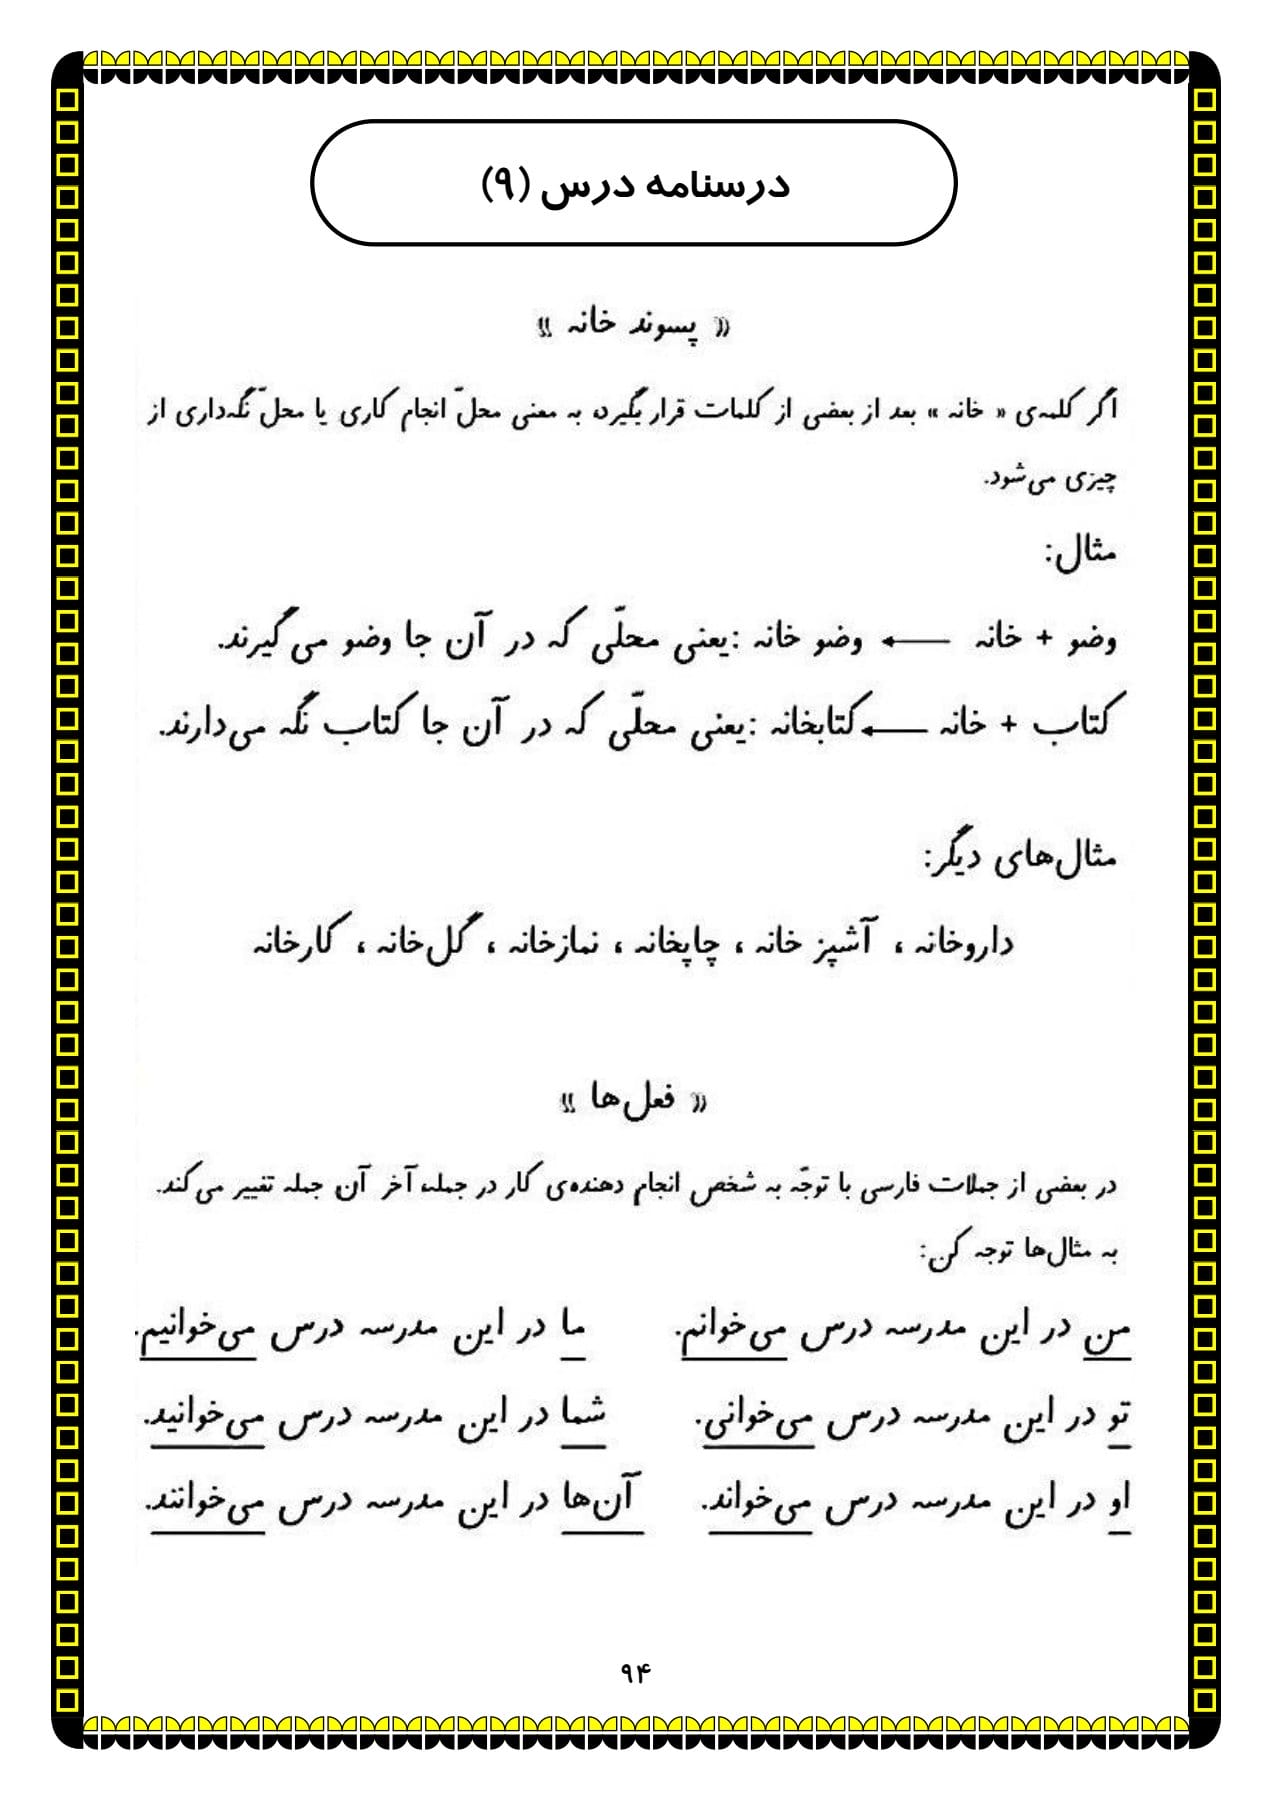 درسنامه درس (۹)
« پسوند خانه »
اگر کلمه‌ی « خانه » بعد از بعضی از کلمات قرار بگیرد، به معنی محلّ انجام کاری یا محلّ نگه‌داری از
چیزی می‌شود.
مثال:
وضو + خانه ← وضو خانه :یعنی محلّی که در آن جا وضو می‌گیرند.
کتاب + خانه ← کتابخانه :یعنی محلّی که در آن جا کتاب نگه می‌دارند.
مثال‌های دیگر:
داروخانه ، آشپز خانه ، چاپخانه ، نمازخانه ، گل‌خانه ، کارخانه
« فعل‌ها »
در بعضی از جملات فارسی با توجّه به شخص انجام دهنده‌ی کار در جمله، آخر آن جمله تغییر می‌کند.
به مثال‌ها توجه کن:
من در این مدرسه درس می‌خوانم. ما در این مدرسه درس می‌خوانیم.
تو در این مدرسه درس می‌خوانی. شما در این مدرسه درس می‌خوانید.
او در این مدرسه درس می‌خواند. آن‌ها در این مدرسه درس می‌خوانند.
۹۴